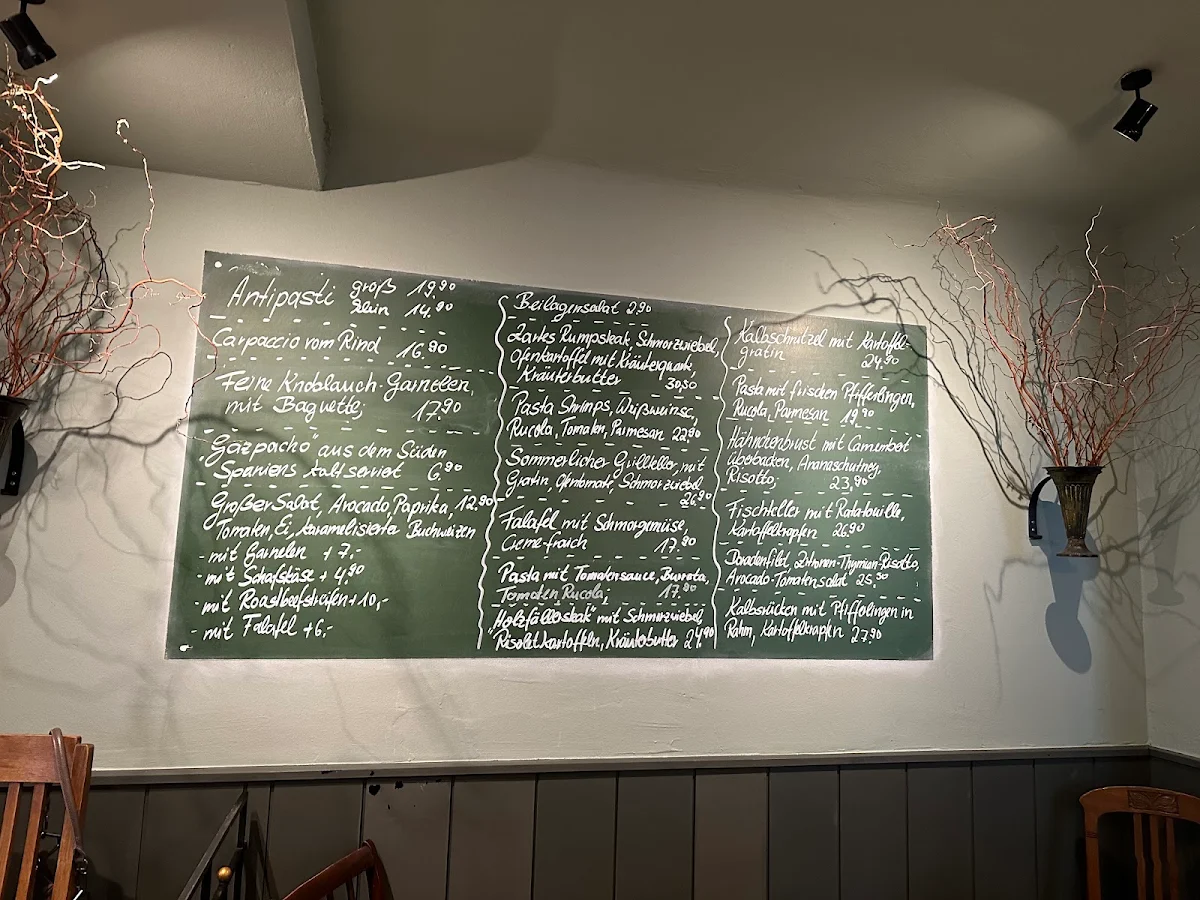 Antipasti groß 19,90
klein 14,90
Carpaccio vom Rind 16,90
Feine Knoblauch-Garnelen,
mit Baguette, 17,90
"Gazpacho" aus dem Süden
Spaniens kalt serviert 6,90
Großer Salat, Avocado, Paprika, 12,90
Tomaten, Ei, karamelisierter Buchweizen
- mit Garnelen + 7,-
- mit Schafskäse + 4,90
- mit Roastbeefstreifen + 10,-
- mit Falafel + 6,-
Beilagensalat 2,90
Zartes Rumpsteak, Schmorzwiebel,
Ofenkartoffel mit Kräuterquark,
Kräuterbutter 30,50
Pasta Shrimps, Weißweinsc,
Rucola, Tomaten, Parmesan 22,90
Sommerlicher Grillteller, mit
Gratin, Ofentomate, Schmorzwiebel
26,90
Falafel mit Schmorgemüse,
Creme-fraich 17,90
Pasta mit Tomatensauce, Burrata,
Tomaten Rucola, 17,90
"Holzfällersteak" mit Schmorzwiebel,
Risoleekartoffeln, Kräuterbutter 24,90
Kalbschnitzel mit Kartoffel-
gratin 24,90
Pasta mit frischen Pfifferlingen,
Rucola, Parmesan 19,90
Hähnchenbrust mit Camembert
überbacken, Ananaschutney,
Risotto, 23,90
Fischteller mit Ratatouille,
Kartoffelkrapfen 26,90
Doradenfilet, Zitronen-Thymian-Risotto,
Avocado-Tomatensalat 25,50
Kalbsrücken mit Pfifferlingen in
Rahm, Kartoffelkrapfen 27,90